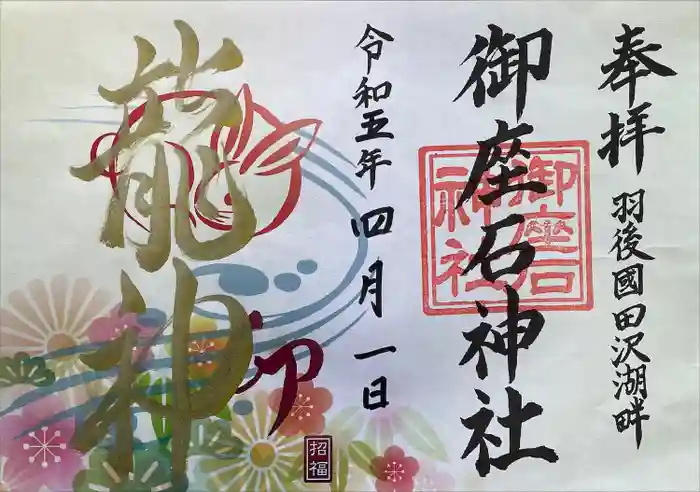 奉拝
羽後國田沢湖畔
御座石神社
御座石
神社
令和五年四月一日
龍神
卯
招福